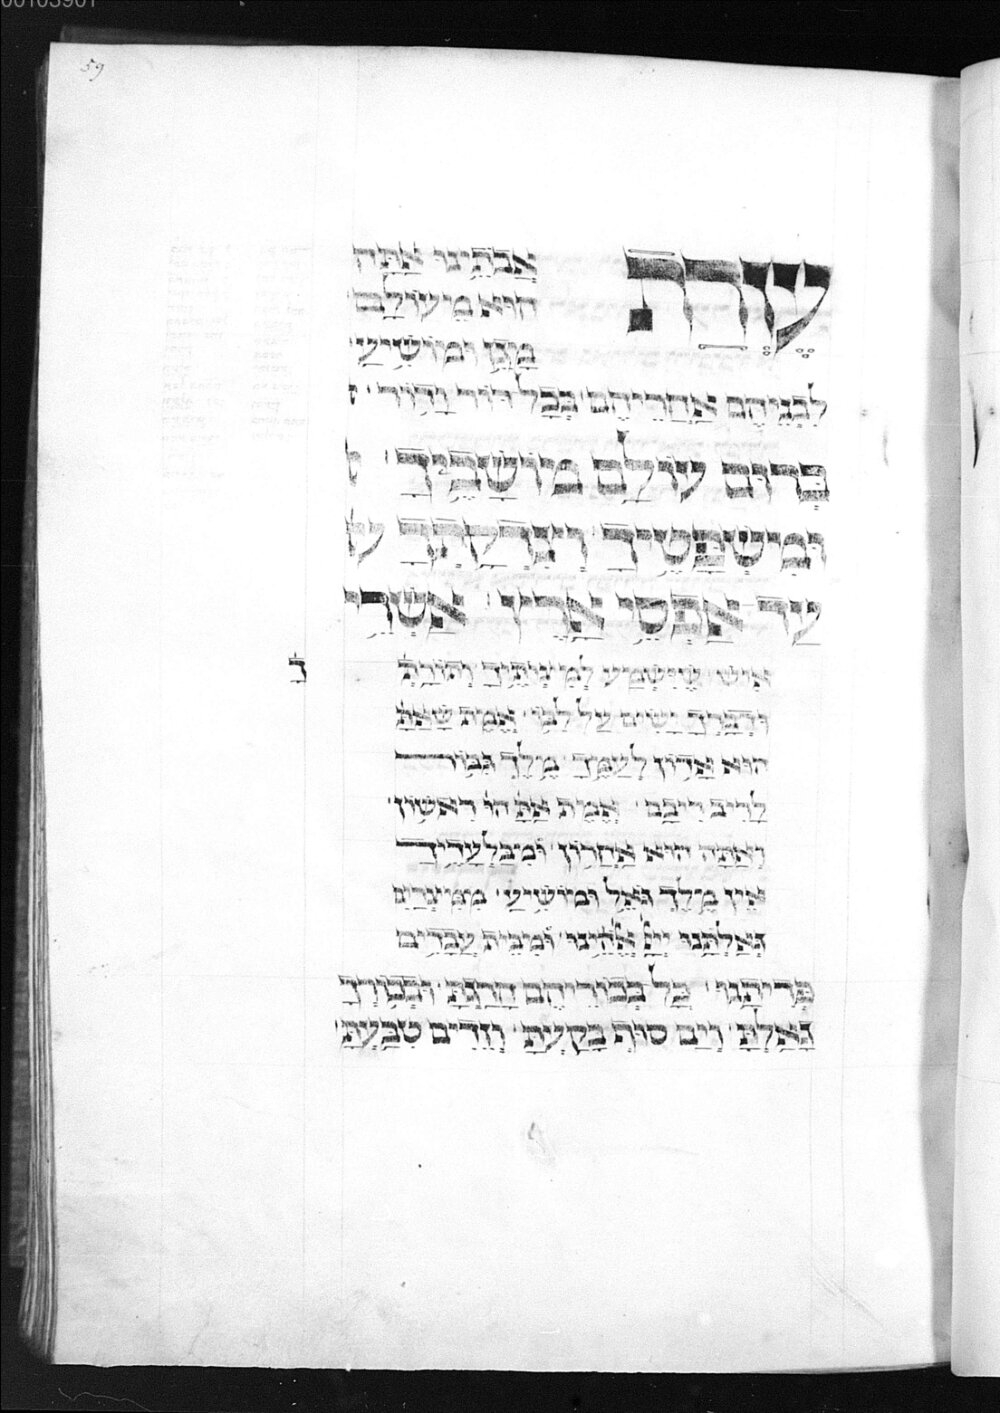 59
עֶזְרַת
אֲבֹתֵינוּ אַתָּה
הוּא מֵעוֹלָם
מָגֵן וּמוֹשִׁיעַ
לִבְנֵיהֶם אַחֲרֵיהֶם בְּכָל דּוֹר וָדוֹר
בְּרוּם עוֹלָם מוֹשָׁבֶיךָ
וּמִשְׁפָּטֶיךָ וְצִדְקָתְךָ עַ
עַד אַפְסֵי אֶרֶץ אַשְׁרֵי
אִישׁ שֶׁיִּשְׁמַע לְמִצְוֹתֶיךָ וְתוֹרָתְ
ךָ
וּדְבָרְךָ יָשִׂים עַל לִבּוֹ אֱמֶת שָׁאַתָּ
הוּא אָדוֹן לְעַמֶּךָ מֶלֶךְ גִּבּוֹר
לָרִיב רִיבָם אֱמֶת אַתָּ הוּ רִאשׁוֹן
וְאַתָּה הוּא אַחֲרוֹן וּמִבַּלְעָדֶיךָ
אֵין מֶלֶךְ גּוֹאֵל וּמוֹשִׁיעַ מִמִּצְרַיִם
גְּאַלְתָּנוּ יְיָ אֱלֹהֵינוּ וּמִבֵּית עֲבָדִים
פְּדִיתָנוּ כָּל בְּכוֹרֵיהֶם הָרַגְתָּ וּבְכוֹרְךָ
גָּאַלְתָּ וְיַם סוּף בָּקַעְתָּ וְזֵדִים טִבַּעְתָּ